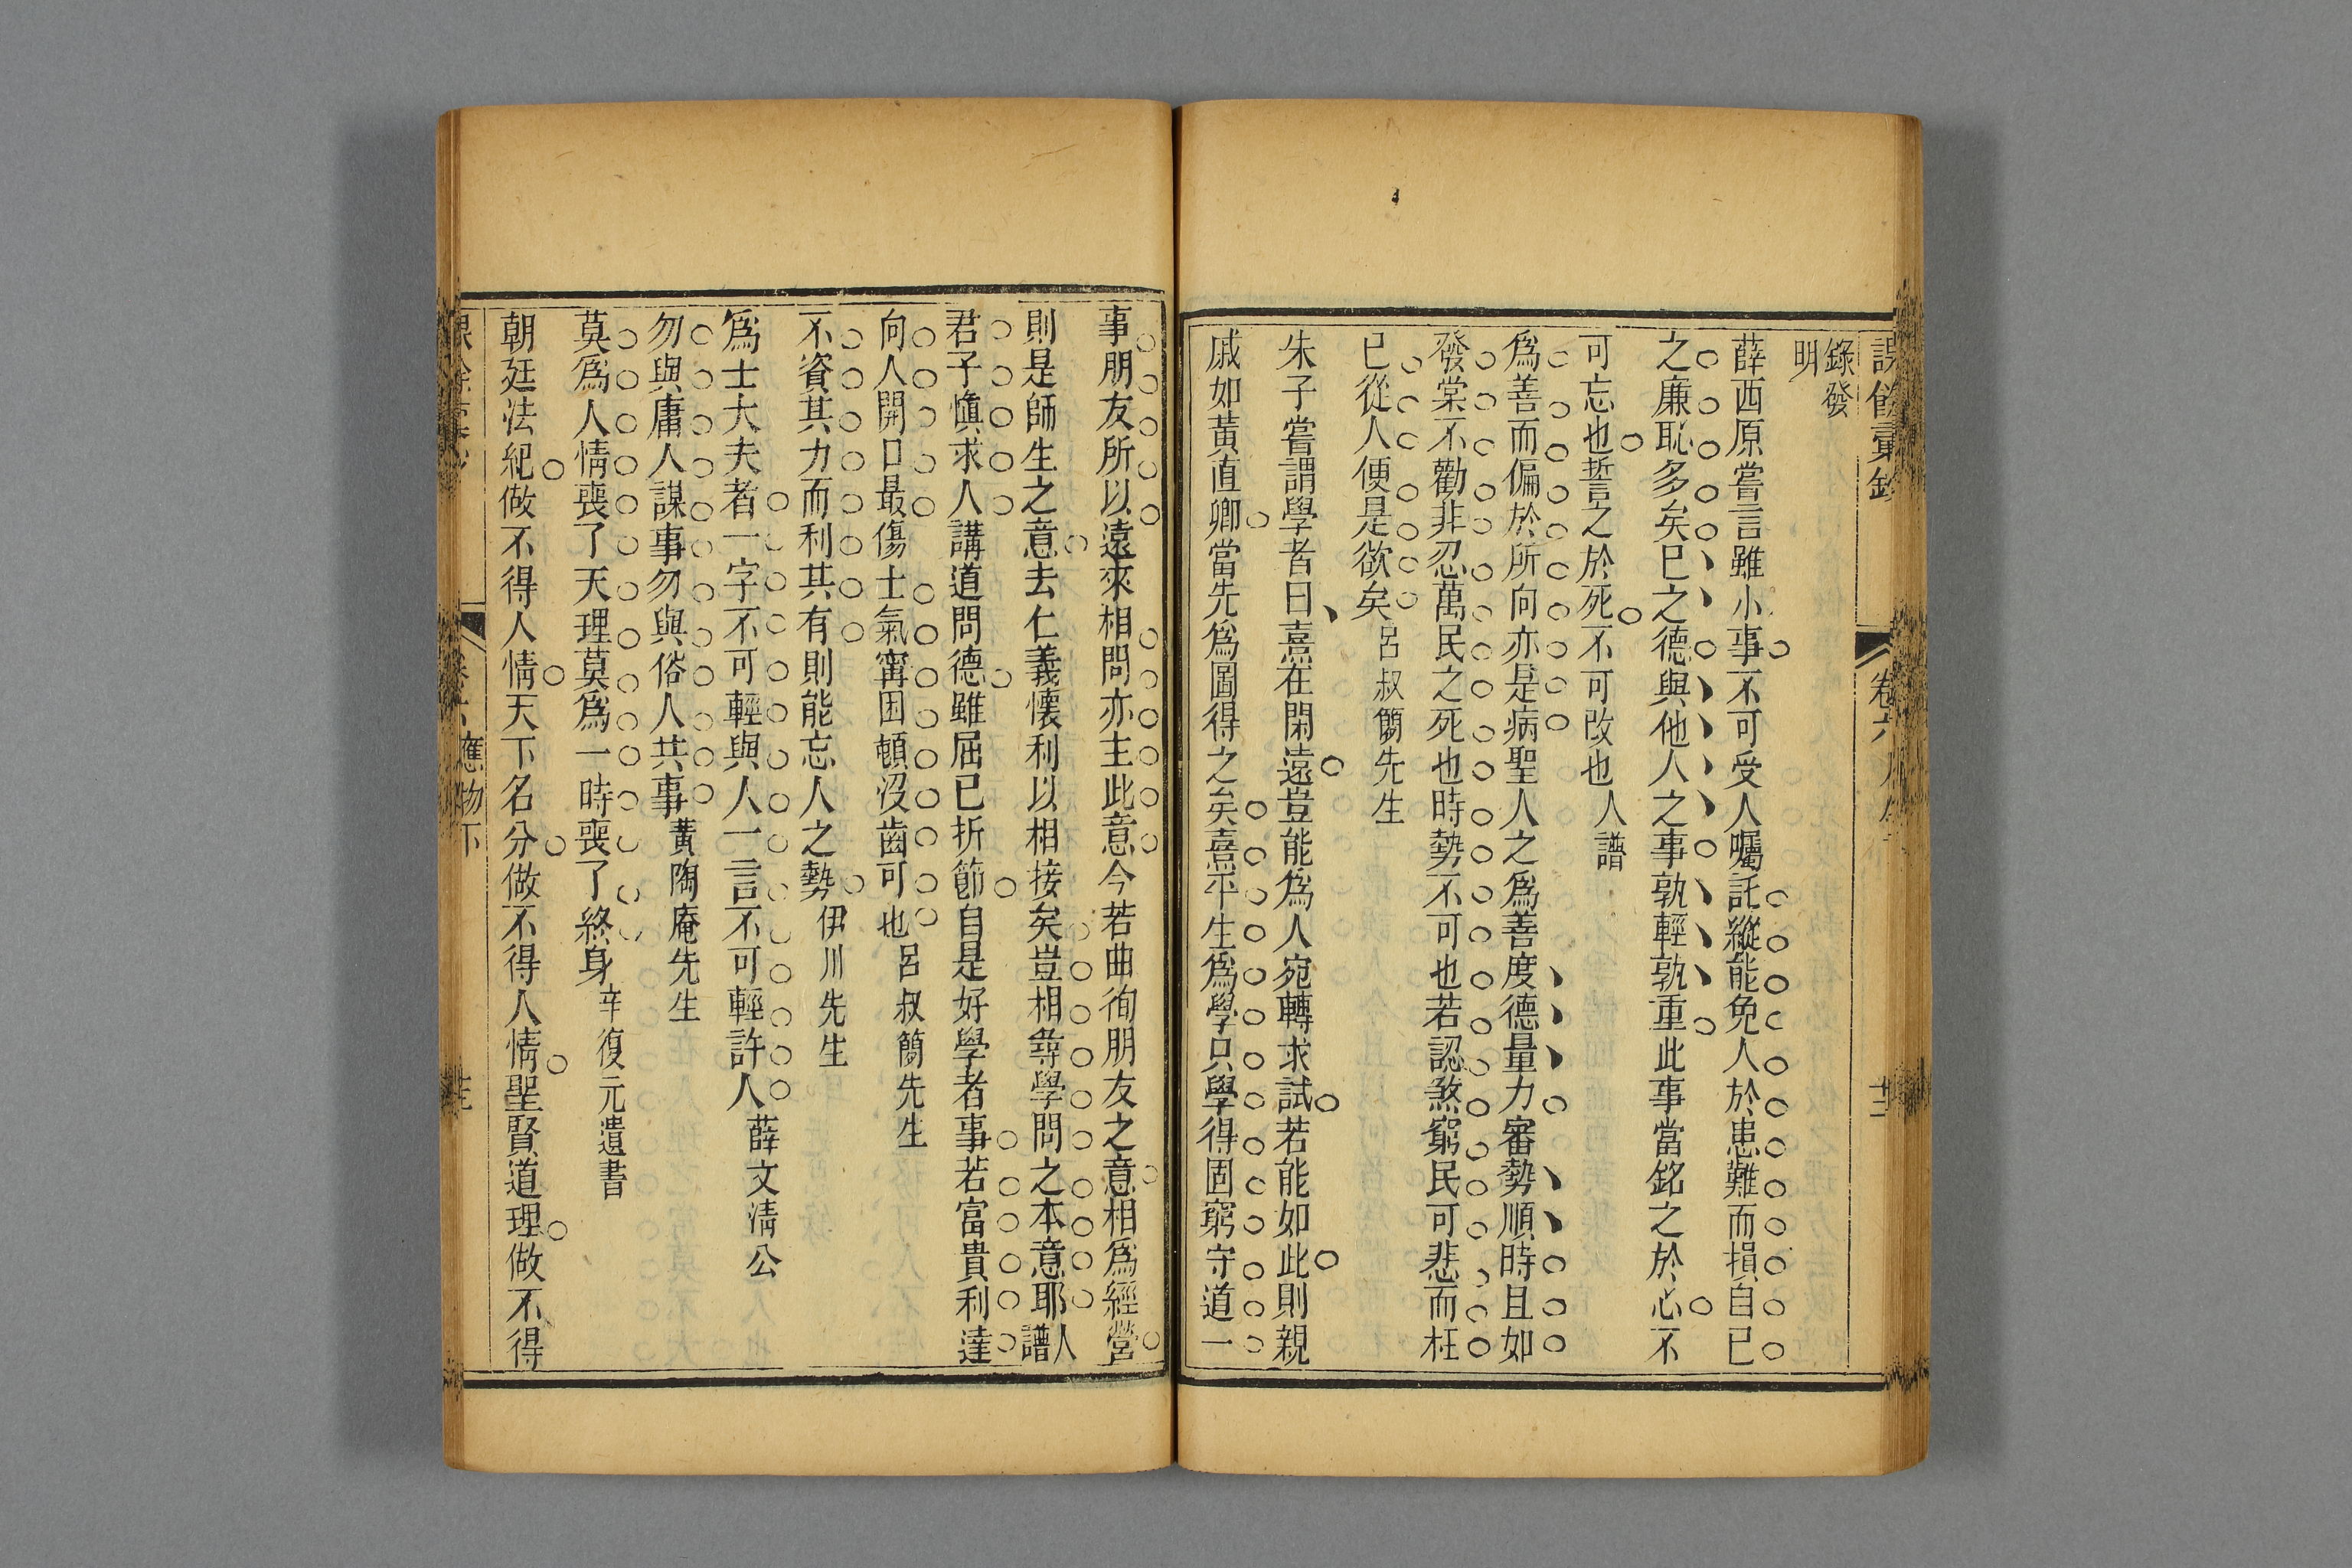 課餘彙鈔
卷六
錄發
明
薛西原嘗言雖小事不可受人囑託縱能免人於患難而損自已
之廉恥多矣巳之德與他人之事孰輕孰重此事當銘之於心不
可忘也誓之於死不可改也人譜
爲善而偏於所向亦是病聖人之爲善度德量力審勢順時且如
發棠不勸非忍萬民之死也時勢不可也若認煞窮民可悲而枉
已從人便是欲矣呂叔簡先生
朱子嘗謂學者曰熹在閑遠豈能爲人宛轉求試若能如此則親
戚如黃直卿當先爲圖得之矣熹平生爲學只學得固窮守道一
事朋友所以遠來相問亦主此意今若曲徇朋友之意相爲經營
則是師生之意去仁義懷利以相接矣豈相尋學問之本意耶人譜
君子愼求人講道問德雖屈已折節自是好學者事若富貴利達
向人開口最傷士氣寗困頓沒齒可也呂叔簡先生
不資其力而利其有則能忘人之勢伊川先生
爲士大夫者一字不可輕與人一言不可輕許人薛文淸公
勿與庸人謀事勿與俗人共事黃陶庵先生
莫爲人情喪了天理莫爲一時喪了終身辛復元遺書
朝廷法紀做不得人情天下名分做不得人情聖賢道理做不得
卷六 應物下